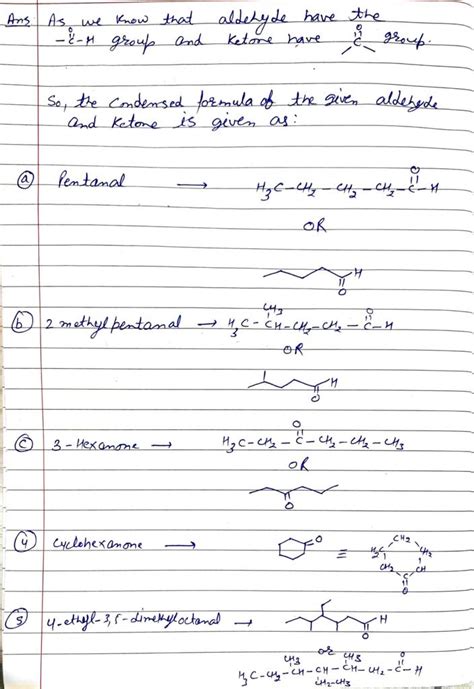 Ans As we know that aldehyde have the
O
-C-H group and ketone have C group.
So, the Condensed formula of the given aldehyde
and Ketone is given as:
O
(a) Pentanal → H3C-CH2-CH2-CH2-C-H
OR
H
O
CH3 O
(b) 2 methyl pentanal → H3C-CH-CH2-CH2-C-H
OR
H
O
O
(c) 3-Hexanone → H3C-CH2-C-CH2-CH2-CH3
OR
O
(4) Cyclohexanone → O ≡ CH2
H2C CH2
CH2 CH
C
O
(5) 4-ethyl-3,5-dimethyloctanal → H
O
or
CH3 CH3 O
H3C-CH2-CH-CH-CH-CH2-C-H
CH2-CH3